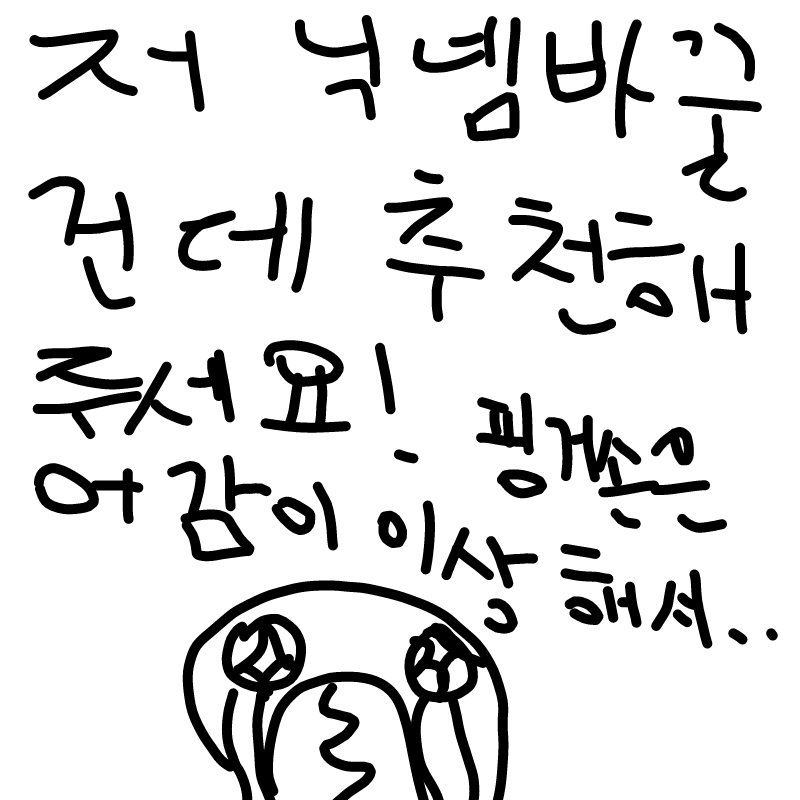 저 닉넴바꿀
건데 추천해
주세요!
핑계손은
어감이 이상해서..